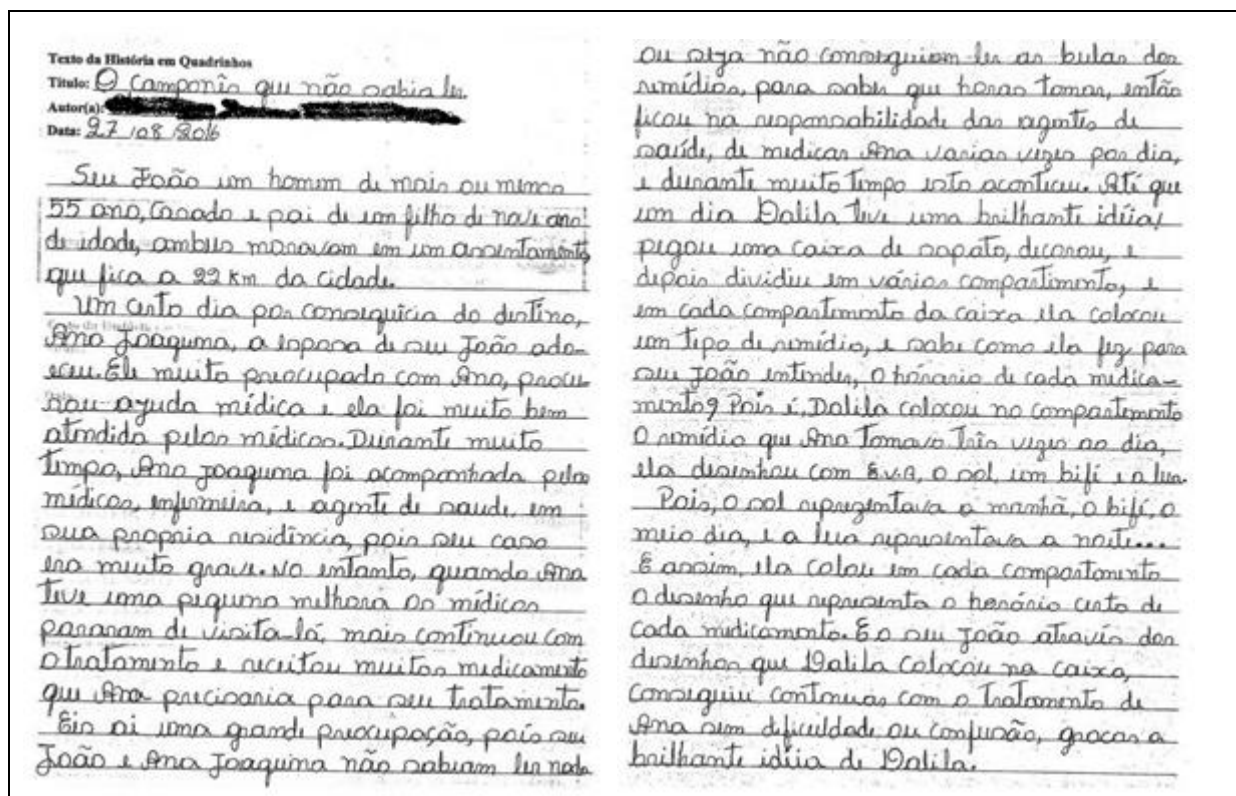 Texto da História em Quadrinhos
Título: O Camponês que não sabia ler.
Autor(a):
Data: 27/08/2016
Seu João um homem de mais ou menos
55 ano, Casado e pai de um filho de nove ano
de idade, ambus moravam em um assentamento
que fica a 22 km da cidade.
Um certo dia por consequîcia do destino,
Ana Joaquina, a esposa de seu João ado-
eceu. Ele muito preocupado com Ana, procu-
rou ajuda médica e ela foi muito bem
atendida pelos médicos. Durante muito
tempo, Ana Joaquina foi acompanhada pelos
médicos, enfermeira, e agente de saude, em
sua propria residência, pois seu caso
era muito grave. No entanto, quando Ana
teve uma pequena melhora os médicos
pararam de visita-lá, mais continuou com
o tratamento e receitou muitos medicamento
que Ana precisaria para seu tratamento.
Eis ai uma grande preocupação, pois seu
João e Ana Joaquina não sabiam ler nada
ou seja não conseguiam ler as bulas dos
remédios, para saber que horas tomar, então
ficou na responsabilidade das agentes de
saúde, de medicar Ana varias vezes por dia,
e durante muito tempo isto aconteceu. Até que
um dia Dalila teve uma brilhante idéia!
pegou uma caixa de sapato, decorou, e
depois dividiu em vários compartimento, e
em cada compartimento da caixa ela colocou
um tipo de remédio, e sabe como ela fez para
seu João entender, o hórario de cada medica-
mento? Pois é, Dalila colocou no compartimento
O remédio que Ana tomava três vezes ao dia,
ela desenhou com E.V.A, o sol, um bifé e a lua.
Pois, o sol reprezentava a manhã, o bifé, o
meio dia, e a lua representava a noite...
E assim, ela colou em cada compartimento
o desenho que representa o horário certo de
cada medicamento. E o seu João através dos
desenhos que Dalila colocou na caixa,
conseguiu continuar com o tratamento de
Ana sem dificuldade ou confusão, graças a
brilhante idéia de Dalila.